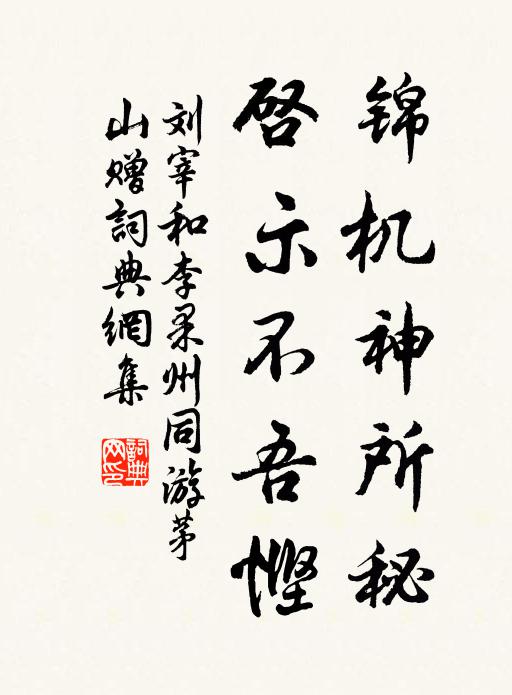 锦机神所秘
启示不吾悭
刘宰和李果州同游茅
山赠詞典網集
詞典网印